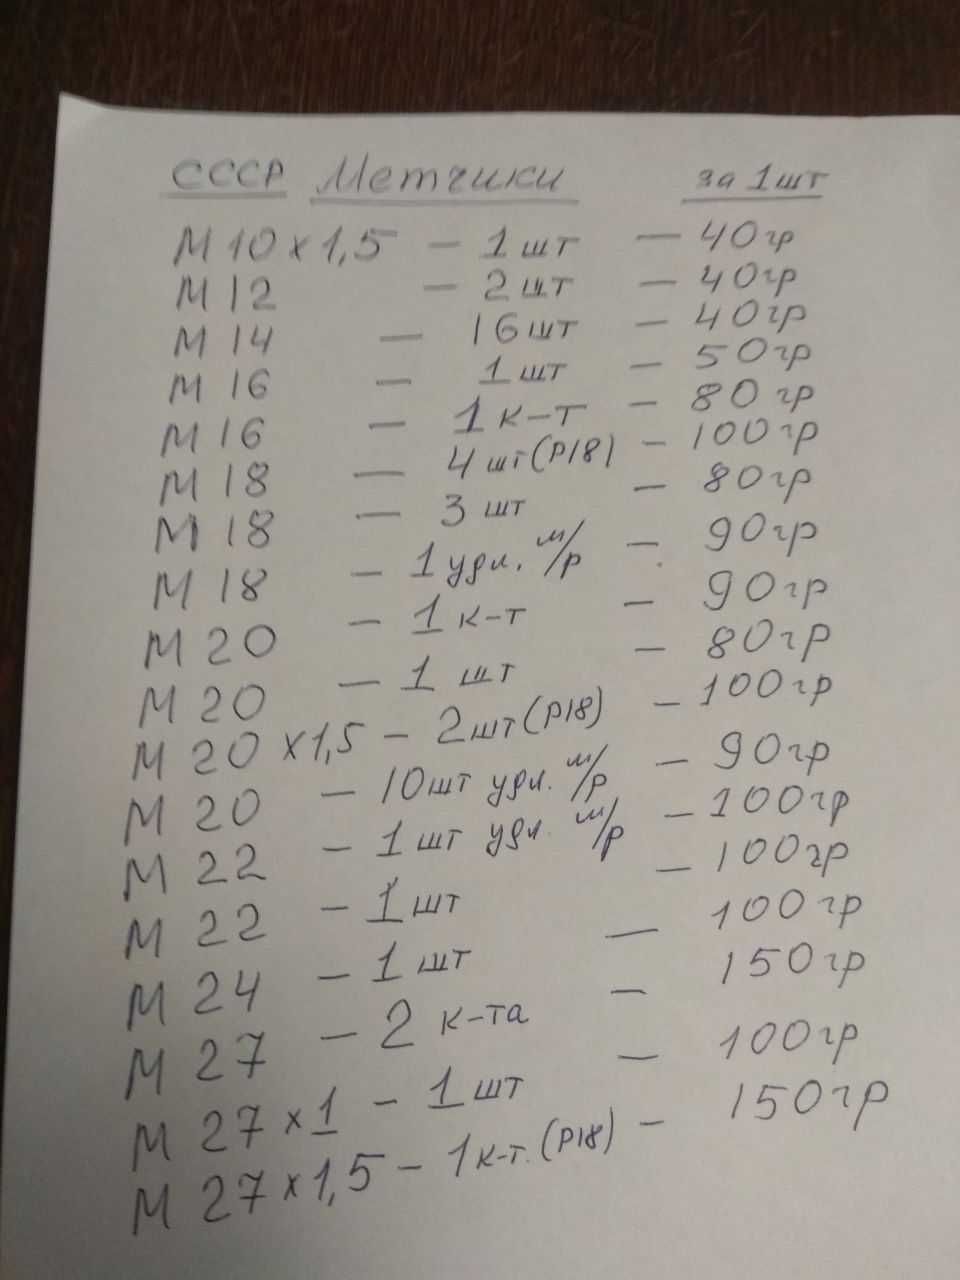 СССР Метчики за 1шт
М 10 х 1,5 – 1 шт – 40гр
М 12 – 2 шт – 40гр
М 14 – 16 шт – 40гр
М 16 – 1 шт – 50гр
М 16 – 1 к-т – 80гр
М 18 – 4 шт (Р18) – 100гр
М 18 – 3 шт – 80гр
М 18 – 1 удл. м/р – 90гр
М 20 – 1 к-т – 90гр
М 20 – 1 шт – 80гр
М 20 х 1,5 – 2 шт (Р18) – 100гр
М 20 – 10 шт удл. м/р – 90гр
М 22 – 1 шт удл. м/р – 100гр
М 22 – 1 шт – 100гр
М 24 – 1 шт – 100гр
М 27 – 2 к-та – 150гр
М 27 х 1 – 1 шт – 100гр
М 27 х 1,5 – 1 к-т. (Р18) – 150гр